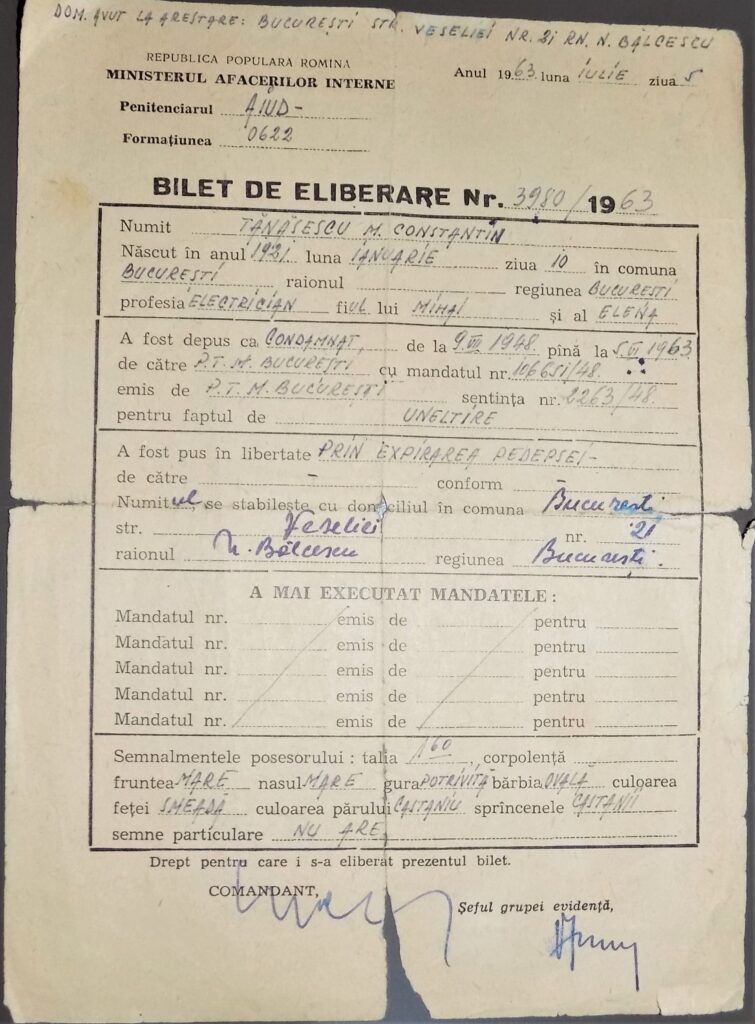 DOM. AVUT LA ARESTARE: BUCUREȘTI STR. VESELIEI NR. 21 RN. N. BĂLCESCU
REPUBLICA POPULARA ROMINA
MINISTERUL AFACERILOR INTERNE
Anul 1963 luna IULIE ziua 5
Penitenciarul AIUD-
Formațiunea 0622
BILET DE ELIBERARE Nr. 3980/1963
Numit TĂNĂSESCU M. CONSTANTIN
Născut în anul 1921 luna IANUARIE ziua 10 în comuna
BUCUREȘTI raionul regiunea BUCUREȘTI
profesia ELECTRICIAN fiul lui MIHAI și al ELENA
A fost depus ca CONDAMNAT, de la 9 VII 1948 pînă la 5 VII 1963
de către P.T.M. BUCUREȘTI cu mandatul nr. 106651/48
emis de P.T.M. BUCUREȘTI sentința nr. 2263/48
pentru faptul de UNELTIRE
A fost pus în libertate PRIN EXPIRAREA PEDEPSEI-
de către - conform -
Numitul se stabilește cu domiciliul în comuna București
str. Veseliei nr. 21
raionul N. Bălcescu regiunea București.
A MAI EXECUTAT MANDATELE:
Mandatul nr. emis de pentru
Mandatul nr. emis de pentru
Mandatul nr. emis de pentru
Mandatul nr. emis de pentru
Mandatul nr. emis de pentru
Semnalmentele posesorului: talia 1,60, corpolență
fruntea MARE nasul MARE gura POTRIVITĂ bărbia OVALĂ culoarea
feței SMEADĂ culoarea părului CASTANIU sprîncenele CASTANII
semne particulare NU ARE
Drept pentru care i s-a eliberat prezentul bilet.
COMANDANT,
Șeful grupei evidență,